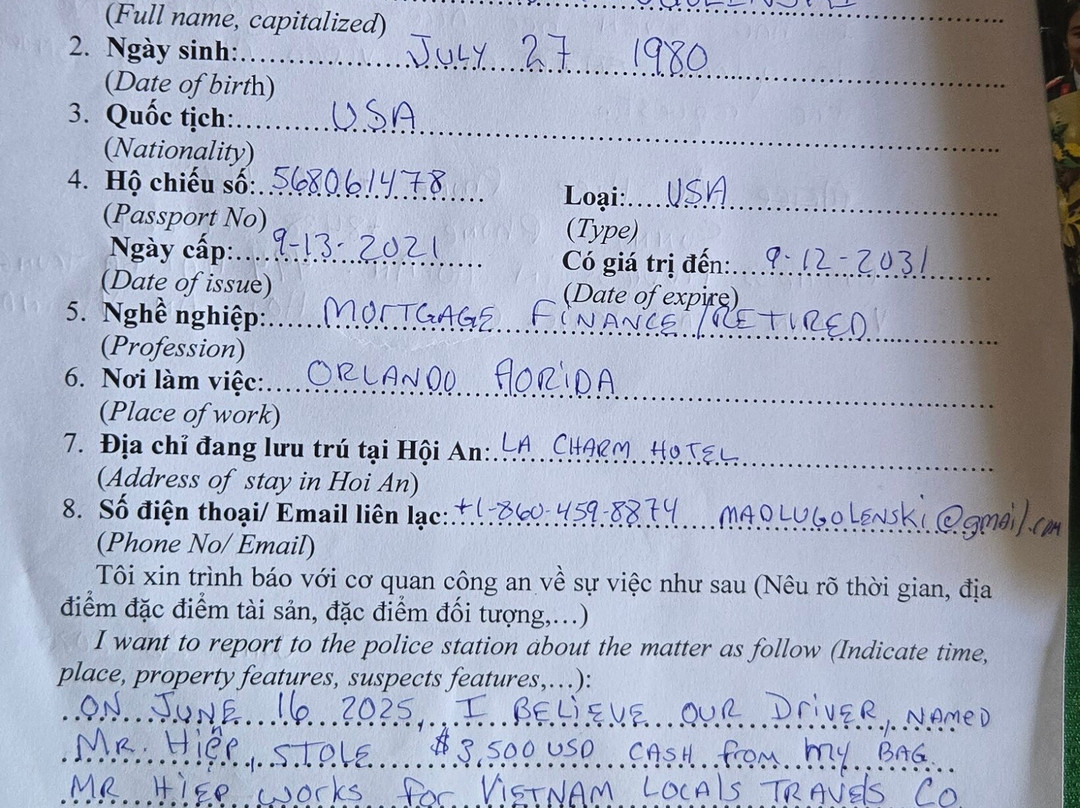 (Full name, capitalized)
2. Ngày sinh:.......JULY 27 1980.......
(Date of birth)
3. Quốc tịch:.......USA.......
(Nationality)
4. Hộ chiếu số:..568061478....... Loại:....USA.......
(Passport No) (Type)
Ngày cấp:....9-13-2021....... Có giá trị đến:....9-12-2031.......
(Date of issue) (Date of expire)
5. Nghề nghiệp:.....MORTGAGE FINANCE/RETIRED.......
(Profession)
6. Nơi làm việc:.....ORLANDO FLORIDA.......
(Place of work)
7. Địa chỉ đang lưu trú tại Hội An:.LA CHARM HOTEL.......
(Address of stay in Hoi An)
8. Số điện thoại/ Email liên lạc:.+1-860-459-8874 MADLUGOLENSKI@gmail.com
(Phone No/ Email)
Tôi xin trình báo với cơ quan công an về sự việc như sau (Nêu rõ thời gian, địa
điểm đặc điểm tài sản, đặc điểm đối tượng,…)
I want to report to the police station about the matter as follow (Indicate time,
place, property features, suspects features,…):
ON JUNE 16 2025, I BELIEVE OUR DRIVER, NAMED
MR. Hiệp, STOLE $3,500 USD CASH from my BAG.
MR HIEP works for VIETNAM LOCALS TRAVELS CO